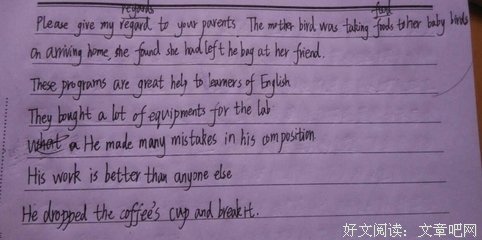 regards food
Please give my regard to your parents The mother bird was taking foods to her baby birds
On arriving home, she found she had left he bag at her friend.
These programs are great help to learners of English
They bought a lot of equipments for the lab
What a He made many mistakes in his composition
His work is better than anyone else
He dropped the coffee's cup and break it.
好文阅读：文章吧网